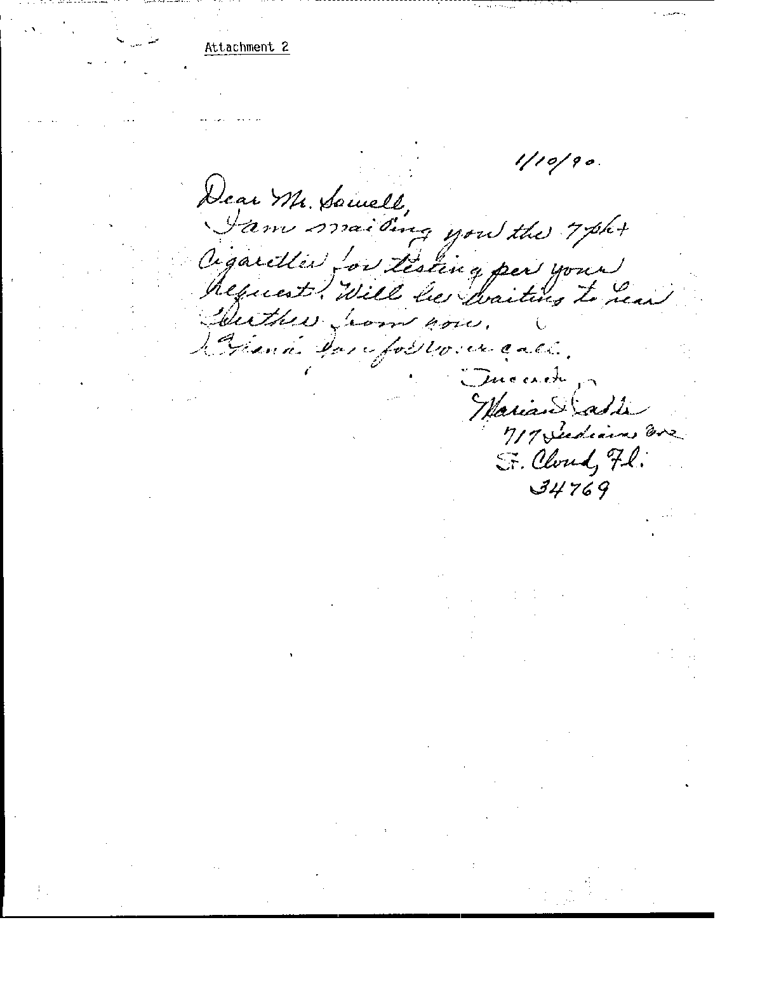 Attachment 2
1/10/90.
Dear Mr. Sowell,
I am mailing you the 7 pkt
Cigarettes for testing per your
request. Will be waiting to hear
further from you.
Thank you for your call.
Sincerely,
Marian
717 Indiana Ave
St. Cloud, Fl.
34769